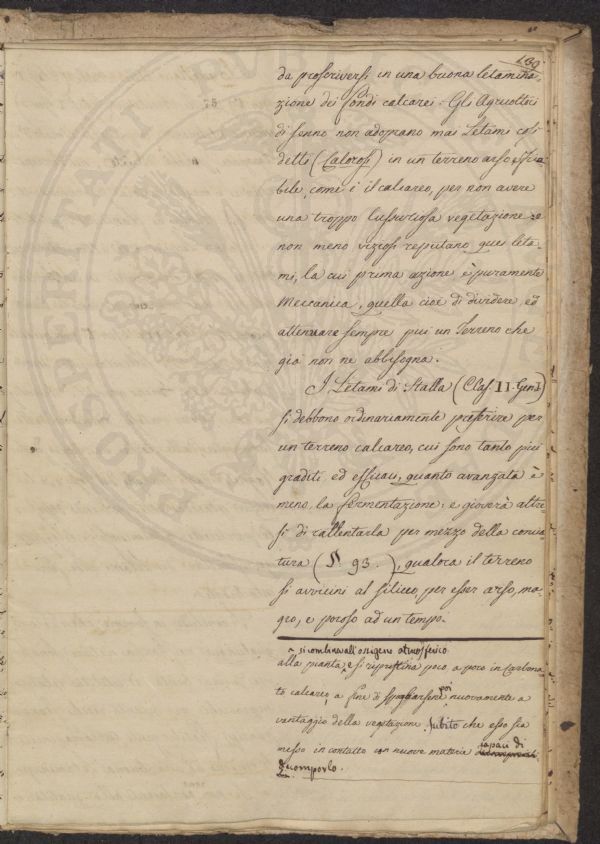 139
da proscriversi in una buona letamina-
zione dei fondi calcarei. Gli Agricoltori
di senno non adoprano mai Letami così
detti (Calorosi) in un terreno arso e friа-
bile, come è il calcareo, per non avere
una troppo lussuriosa vegetazione: e
non meno viziosi reputano quei leta-
mi, la cui prima azione è puramente
Meccanica, quella cioè di dividere, ed
attenuare sempre più un Terreno che
già non ne abbisogna.
I Letami di Stalla (Clas. II. Gen. I)
si debbono ordinariamente preferire per
un terreno calcareo, cui sono tanto più
graditi ed efficaci, quanto avanzata è
meno, la fermentazione: e gioverà altre
sì di rallentarla per mezzo della concia
tura (§. 93.), qualora il terreno
si avvicini al siliceo, per esser arso, ma-
gro, e poroso ad un tempo.
si combina all'ossigeno atmosferico
alla pianta, e si ripristina poco a poco in Carbona
to calcareo, a fine di spogliarsene poi nuovamente a
vantaggio della vegetazione. subito che esso sia
messo in contatto con nuove materie capaci di
decomporlo.
PROSPERITATI PUB